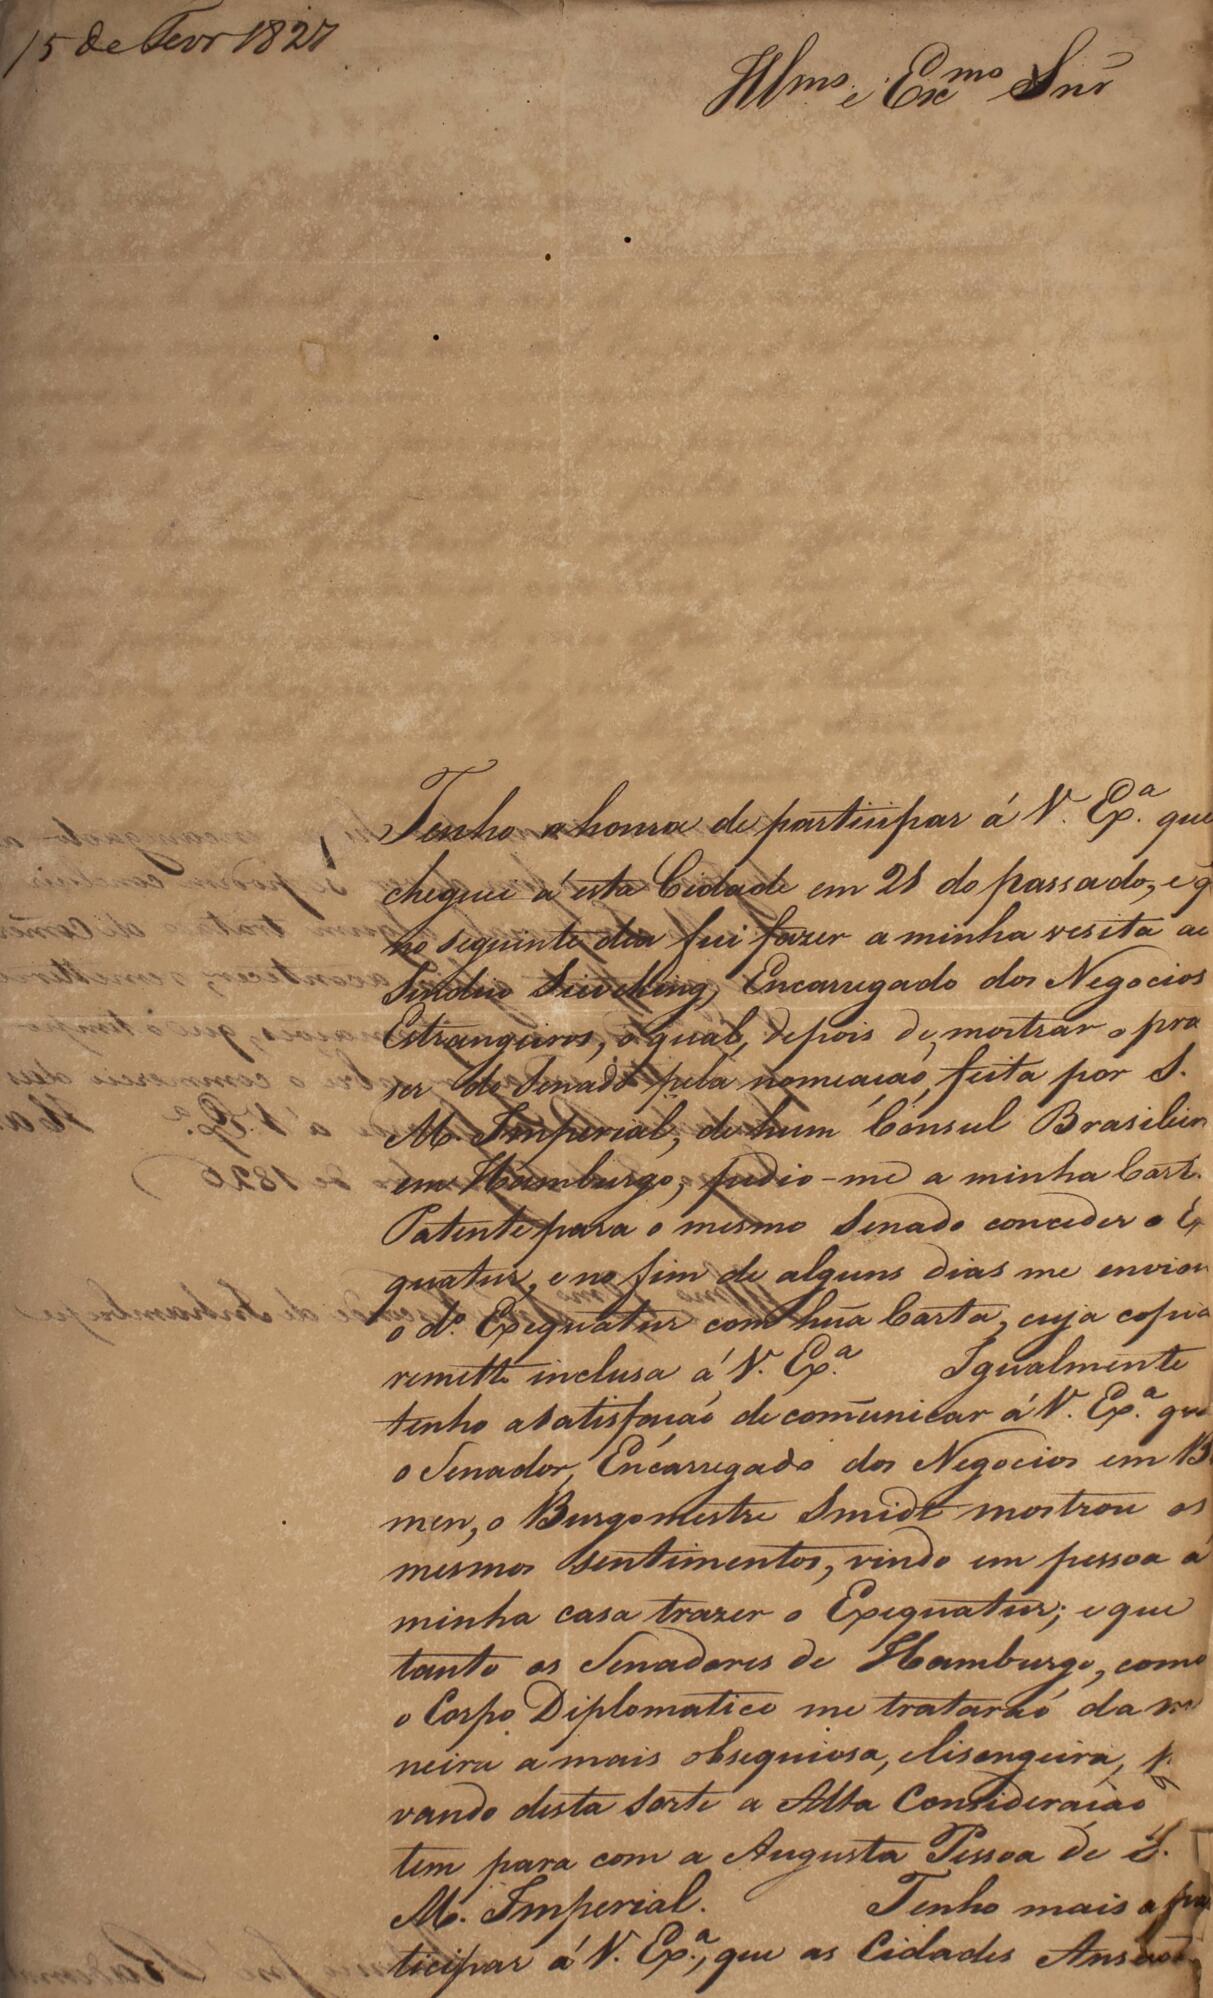 15 de Fevr 1827
Illmo e Exmo Snr
Tenho a honra de participar á V. Exa. que
cheguei á esta Cidade em 21 do passado, e q
no seguinte dia fui fazer a minha vesita ao
Sindico Sieveking, Encarregado dos Negocios
Estrangeiros, o qual, depois de mostrar o pra
ser do Senado pela nomeaçaõ, feita por S.
M. Imperial, de hum Consul Brasileiro
em Hamburgo, pedio-me a minha Cart.
Patente para o mesmo Senado conceder o Ex
quatur, e no fim de alguns dias me enviou
o do. Exequatur com hũa Carta, cuja copia
remetto inclusa á V. Exa. Igualmente
tenho a satisfaçaõ de comũnicar á V. Exa. que
o Senador, Encarregado dos Negocios em B
men, o Burgomestre Smidt mostrou os
mesmos sentimentos, vindo em pessoa á
minha casa trazer o Exequatur; e que
tanto os Senadores de Hamburgo, como
o Corpo Diplomatico me trataraõ da ma
neira a mais obsequiosa, elisongeira,
vando desta sorte a Alta Consideraçaõ q
tem para com a Augusta Pessoa de S.
M. Imperial. Tenho mais a par
ticipar á V. Exa., que as Cidades